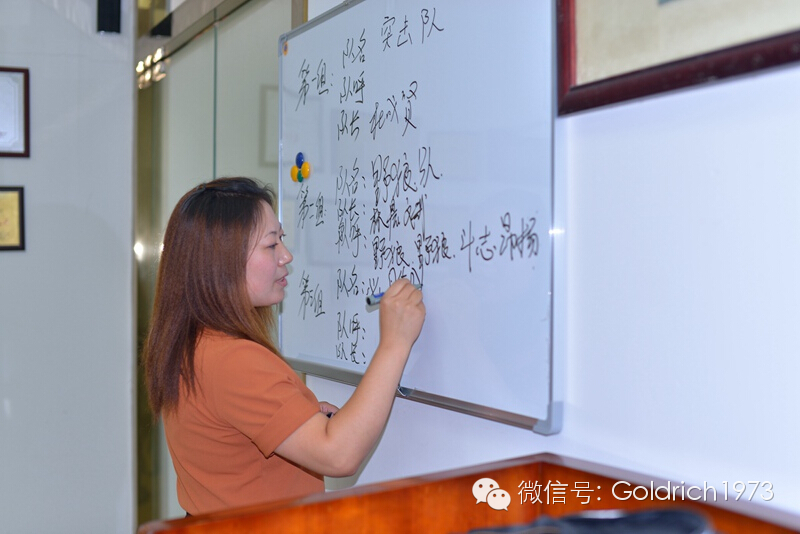 第一组: 队名 突击队
队呼
队长
第二组: 队名: 野狼队
队长:
队呼: 野狼、野狼、斗志昂扬
第三组 队名:
队呼:
队长:
微信号: Goldrich1973